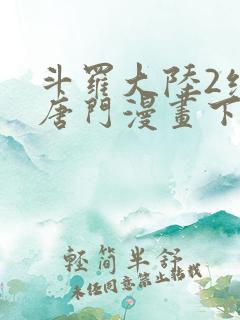 斗羅大陸2
唐門漫畫下
輕簡半舒
未经同意禁止转载